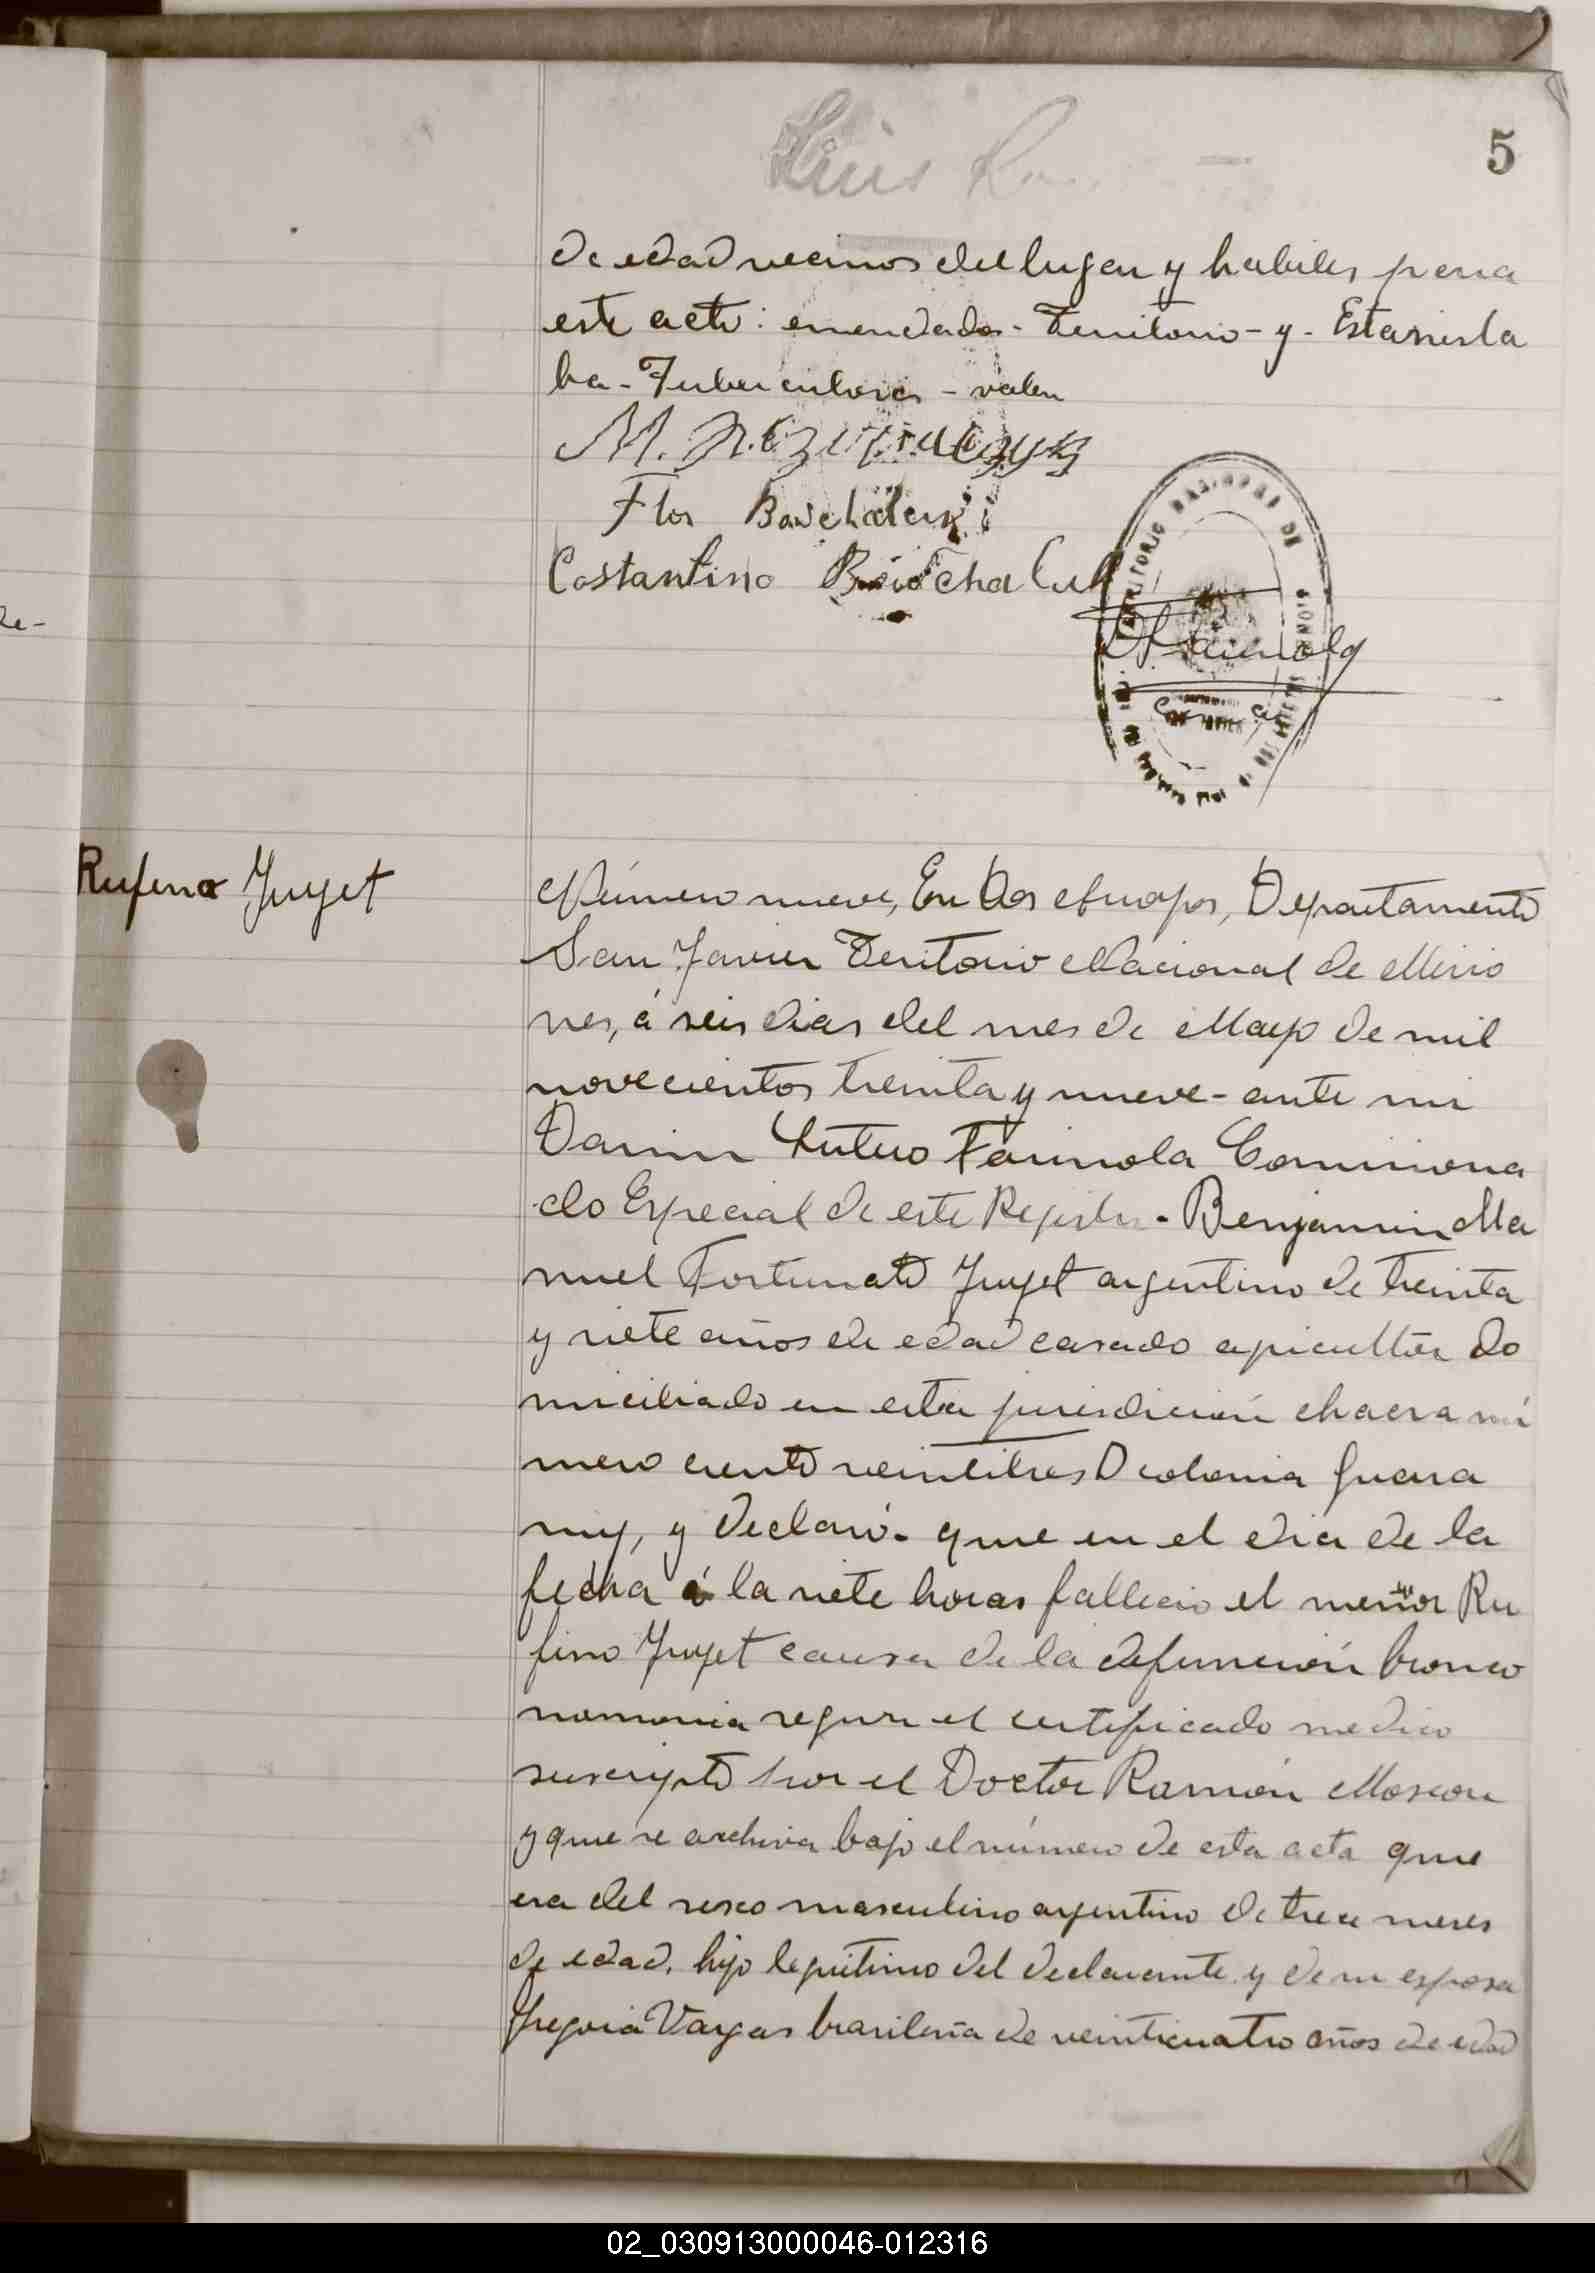 5
de edad vecinos del lugar y habiles para
este acto: enmendados - Territorio - y - Estanisla
ba - Tuberculosis - valen
Flor
Costantino
Rufino Juyet
Número nueve, En Dos Arroyos, Departamento
San Javier Territorio Nacional de Misio
nes, á seis dias del mes de Mayo de mil
novecientos treinta y nueve - ante mi
Farinola Comisiona
do Especial de este Registro - Benjamin Ma
nuel Fortunato Juyet argentino de treinta
y siete años de edad casado apicultor do
miciliado en esta jurisdición chacra nú
mero ciento veintitres D colonia Guara
ny, y declaró - que en el dia de la
fecha á la siete horas fallecio el menor Ru
fino Juyet causa de la defunción bronco
nomonia segun el certificado medico
suscripto por el Doctor Ramón
y que se archiva bajo el número de esta acta que
era del sexo masculino argentino de trece meses
de edad, hijo legitimo del declarante y de su esposa
Gregoria Vargas brasileña de veinticuatro años de edad
02_030913000046-012316